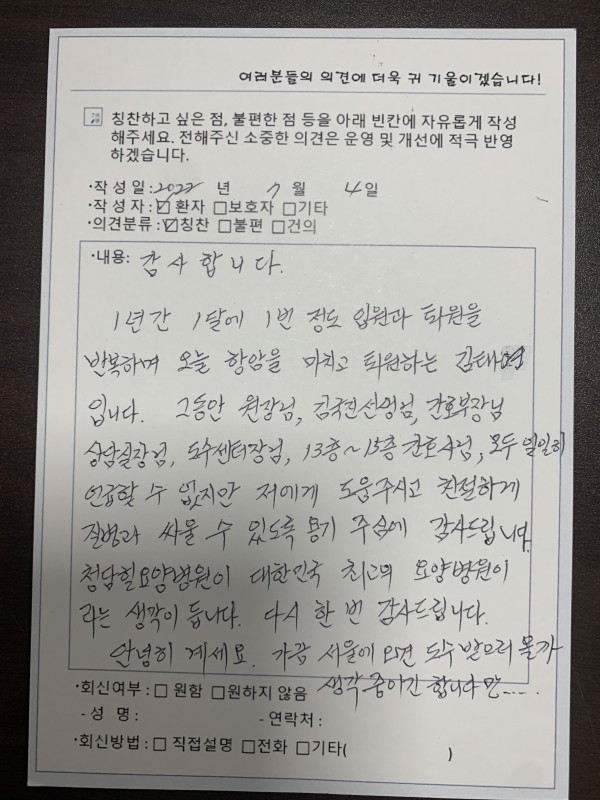 여러분들의 의견에 더욱 귀 기울이겠습니다!
칭찬하고 싶은 점, 불편한 점 등을 아래 빈칸에 자유롭게 작성
해주세요. 전해주신 소중한 의견은 운영 및 개선에 적극 반영
하겠습니다.
·작 성 일 : 2022 년 7 월 4 일
·작 성 자 : ☑ 환자 □보호자 □기타
·의견분류 : ☑칭찬 □불편 □건의
·내용: 감사합니다.
1년간 1달에 1번 정도 입원과 퇴원을
반복하며 오늘 항암을 마치고 퇴원하는 김태
입니다. 그동안 원장님, 김국진선생님, 간호부장님
상담실장님, 도수센터장님, 13층~15층 간호사님, 모두 일일히
언급할 수 없지만 저에게 도움주시고 친절하게
질병과 싸울 수 있도록 용기 주심에 감사드립니다.
청담힐요양병원이 대한민국 최고의 요양병원이
라는 생각이 듭니다. 다시 한 번 감사드립니다.
안녕히 계세요. 가끔 서울에 오면 도수 받으러 올까
생각 중이긴 합니다만.....
·회신여부 : □ 원함 □원하지 않음
- 성 명 : - 연락처 :
·회신방법 : □ 직접설명 □전화 □기타( )